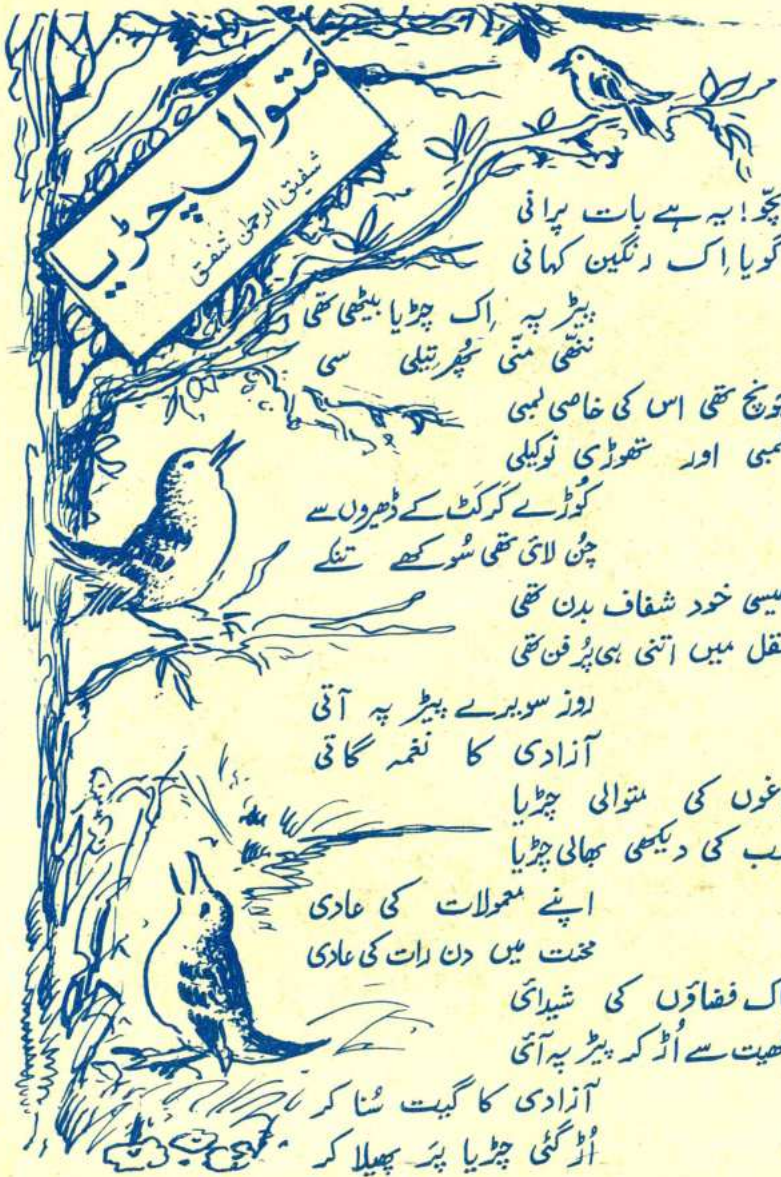 متوالی چڑیا
شفیق الرحمٰن شفیق
بچّو! یہ ہے بات پرانی
گویا اِک رنگین کہانی
پیڑ پہ اِک چڑیا بیٹھی تھی
ننھّی منّی پُھرتیلی سی
چونچ تھی اس کی خاصی لمبی
لمبی اور تھوڑی نوکیلی
کُوڑے کَرکَٹ کے ڈھیروں سے
چُن لائی تھی سُوکھے تنکے
جیسی خود شفاف بدن تھی
عقل میں اتنی ہی پُر فن تھی
روز سویرے پیڑ پہ آتی
آزادی کا نغمہ گاتی
باغوں کی متوالی چڑیا
سب کی دیکھی بھالی چڑیا
اپنے معمولات کی عادی
محنت میں دن رات کی عادی
فضاؤں کی شیدائی
کھیت سے اُڑ کر پیڑ پہ آئی
آزادی کا گیت سُنا کر
اُڑ گئی چڑیا پَر پھیلا کر